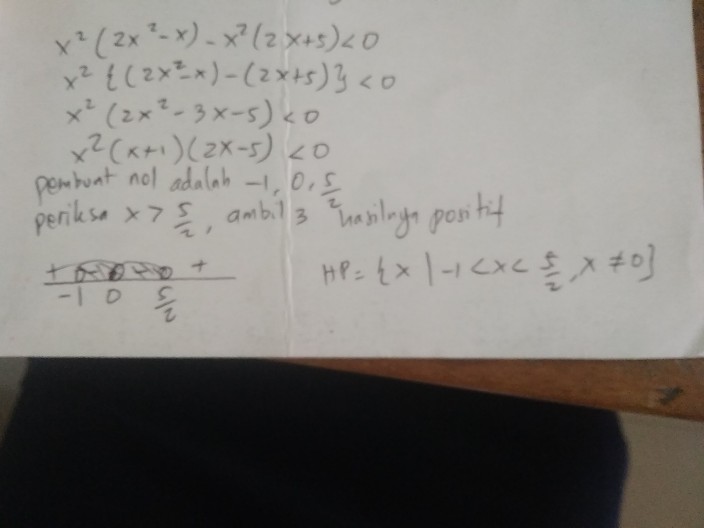 x²(2x²-x)-x²(2x+5)<0
x²{(2x²-x)-(2x+5)}<0
x²(2x²-3x-5)<0
x²(x+1)(2x-5)<0
pembuat nol adalah -1, 0, 5/2
periksa x> 5/2, ambil 3 hasilnya positif
+ +
-1 0 5/2
HP= {x | -1<x< 5/2, x ≠0}